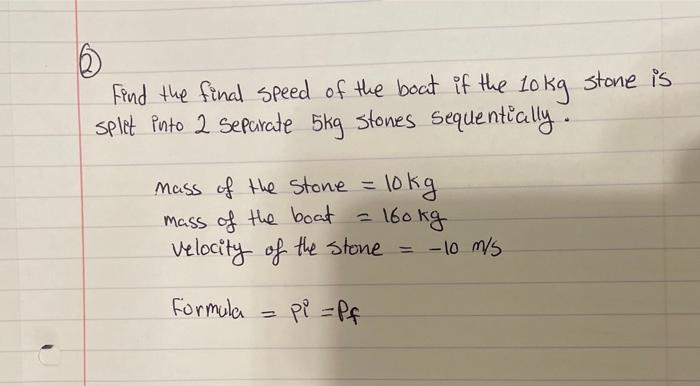 ②
Find the final speed of the boat if the 10kg stone is
split into 2 separate 5kg stones sequentially.
mass of the stone = 10kg
mass of the boat = 160kg
velocity of the stone = -10 m/s
Formula = Pi = Pf